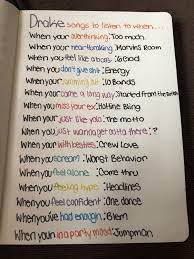 Drake songs to listen to when...
When your overthinking: Too much
When your heartbreaking: Marvins Room
When you feel like a boss: 6 God
When you don't give shit: Energy
When your running out: 10 Bands
When your come a long way: Started From the Bottom
When you miss your ex: Hotline Bling
When your just like yolo: The Motto
When you just wanna get outta there: ?
When your with besties: Crew Love
When you scream: Worst Behavior
When you feel alone: Come thru
When you feeling hype: Headlines
When you feel confident: One dance
When you've had enough: Blem
When your in a party mood: Jumpman